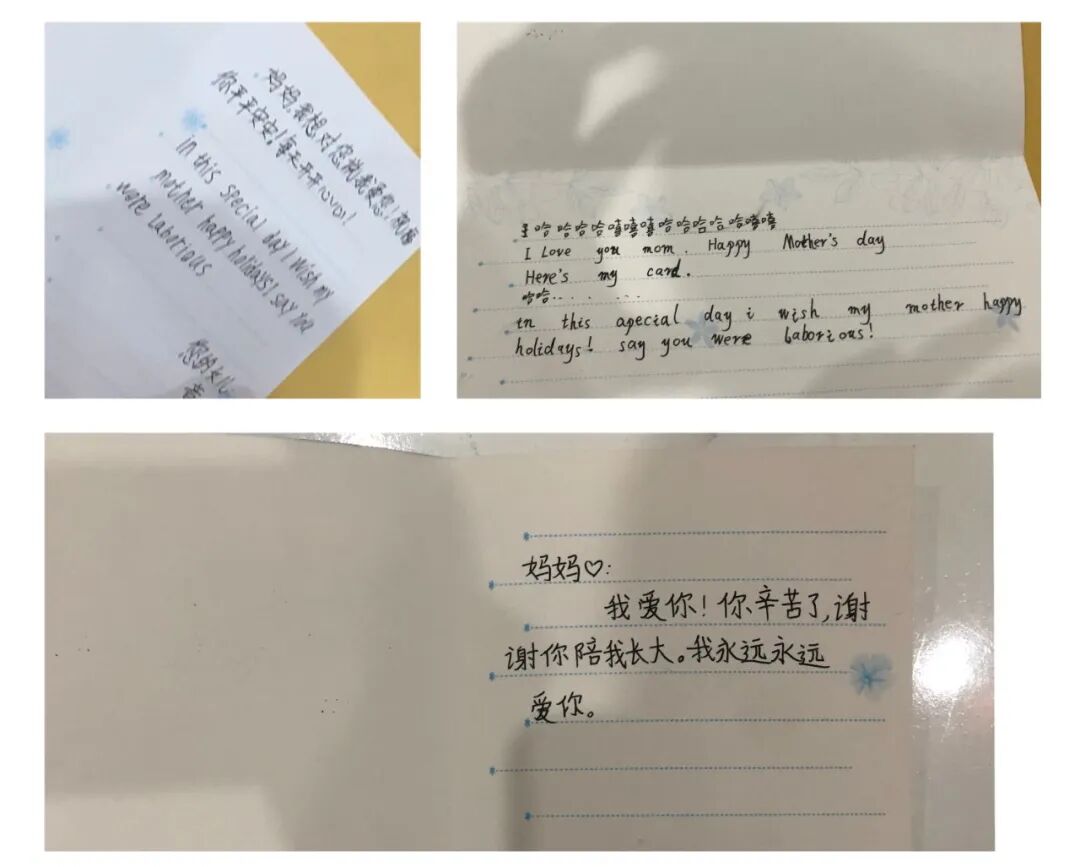 妈妈,我想对您说我爱您!祝福
你平平安安!每天开开心心!
in this special day I Wish my
mother happy holidays! say you
were Laborious
您的女儿
哈哈哈哈嘻嘻嘻哈哈哈哈哈嘻嘻
I Love you mom. Happy Mother's day
Here's my card.
哈哈.. . ...
in this apecial day i wish my mother happy
holidays! say you were Laborious!
妈妈♡:
我爱你!你辛苦了,谢
谢你陪我长大。我永远永远
爱你。